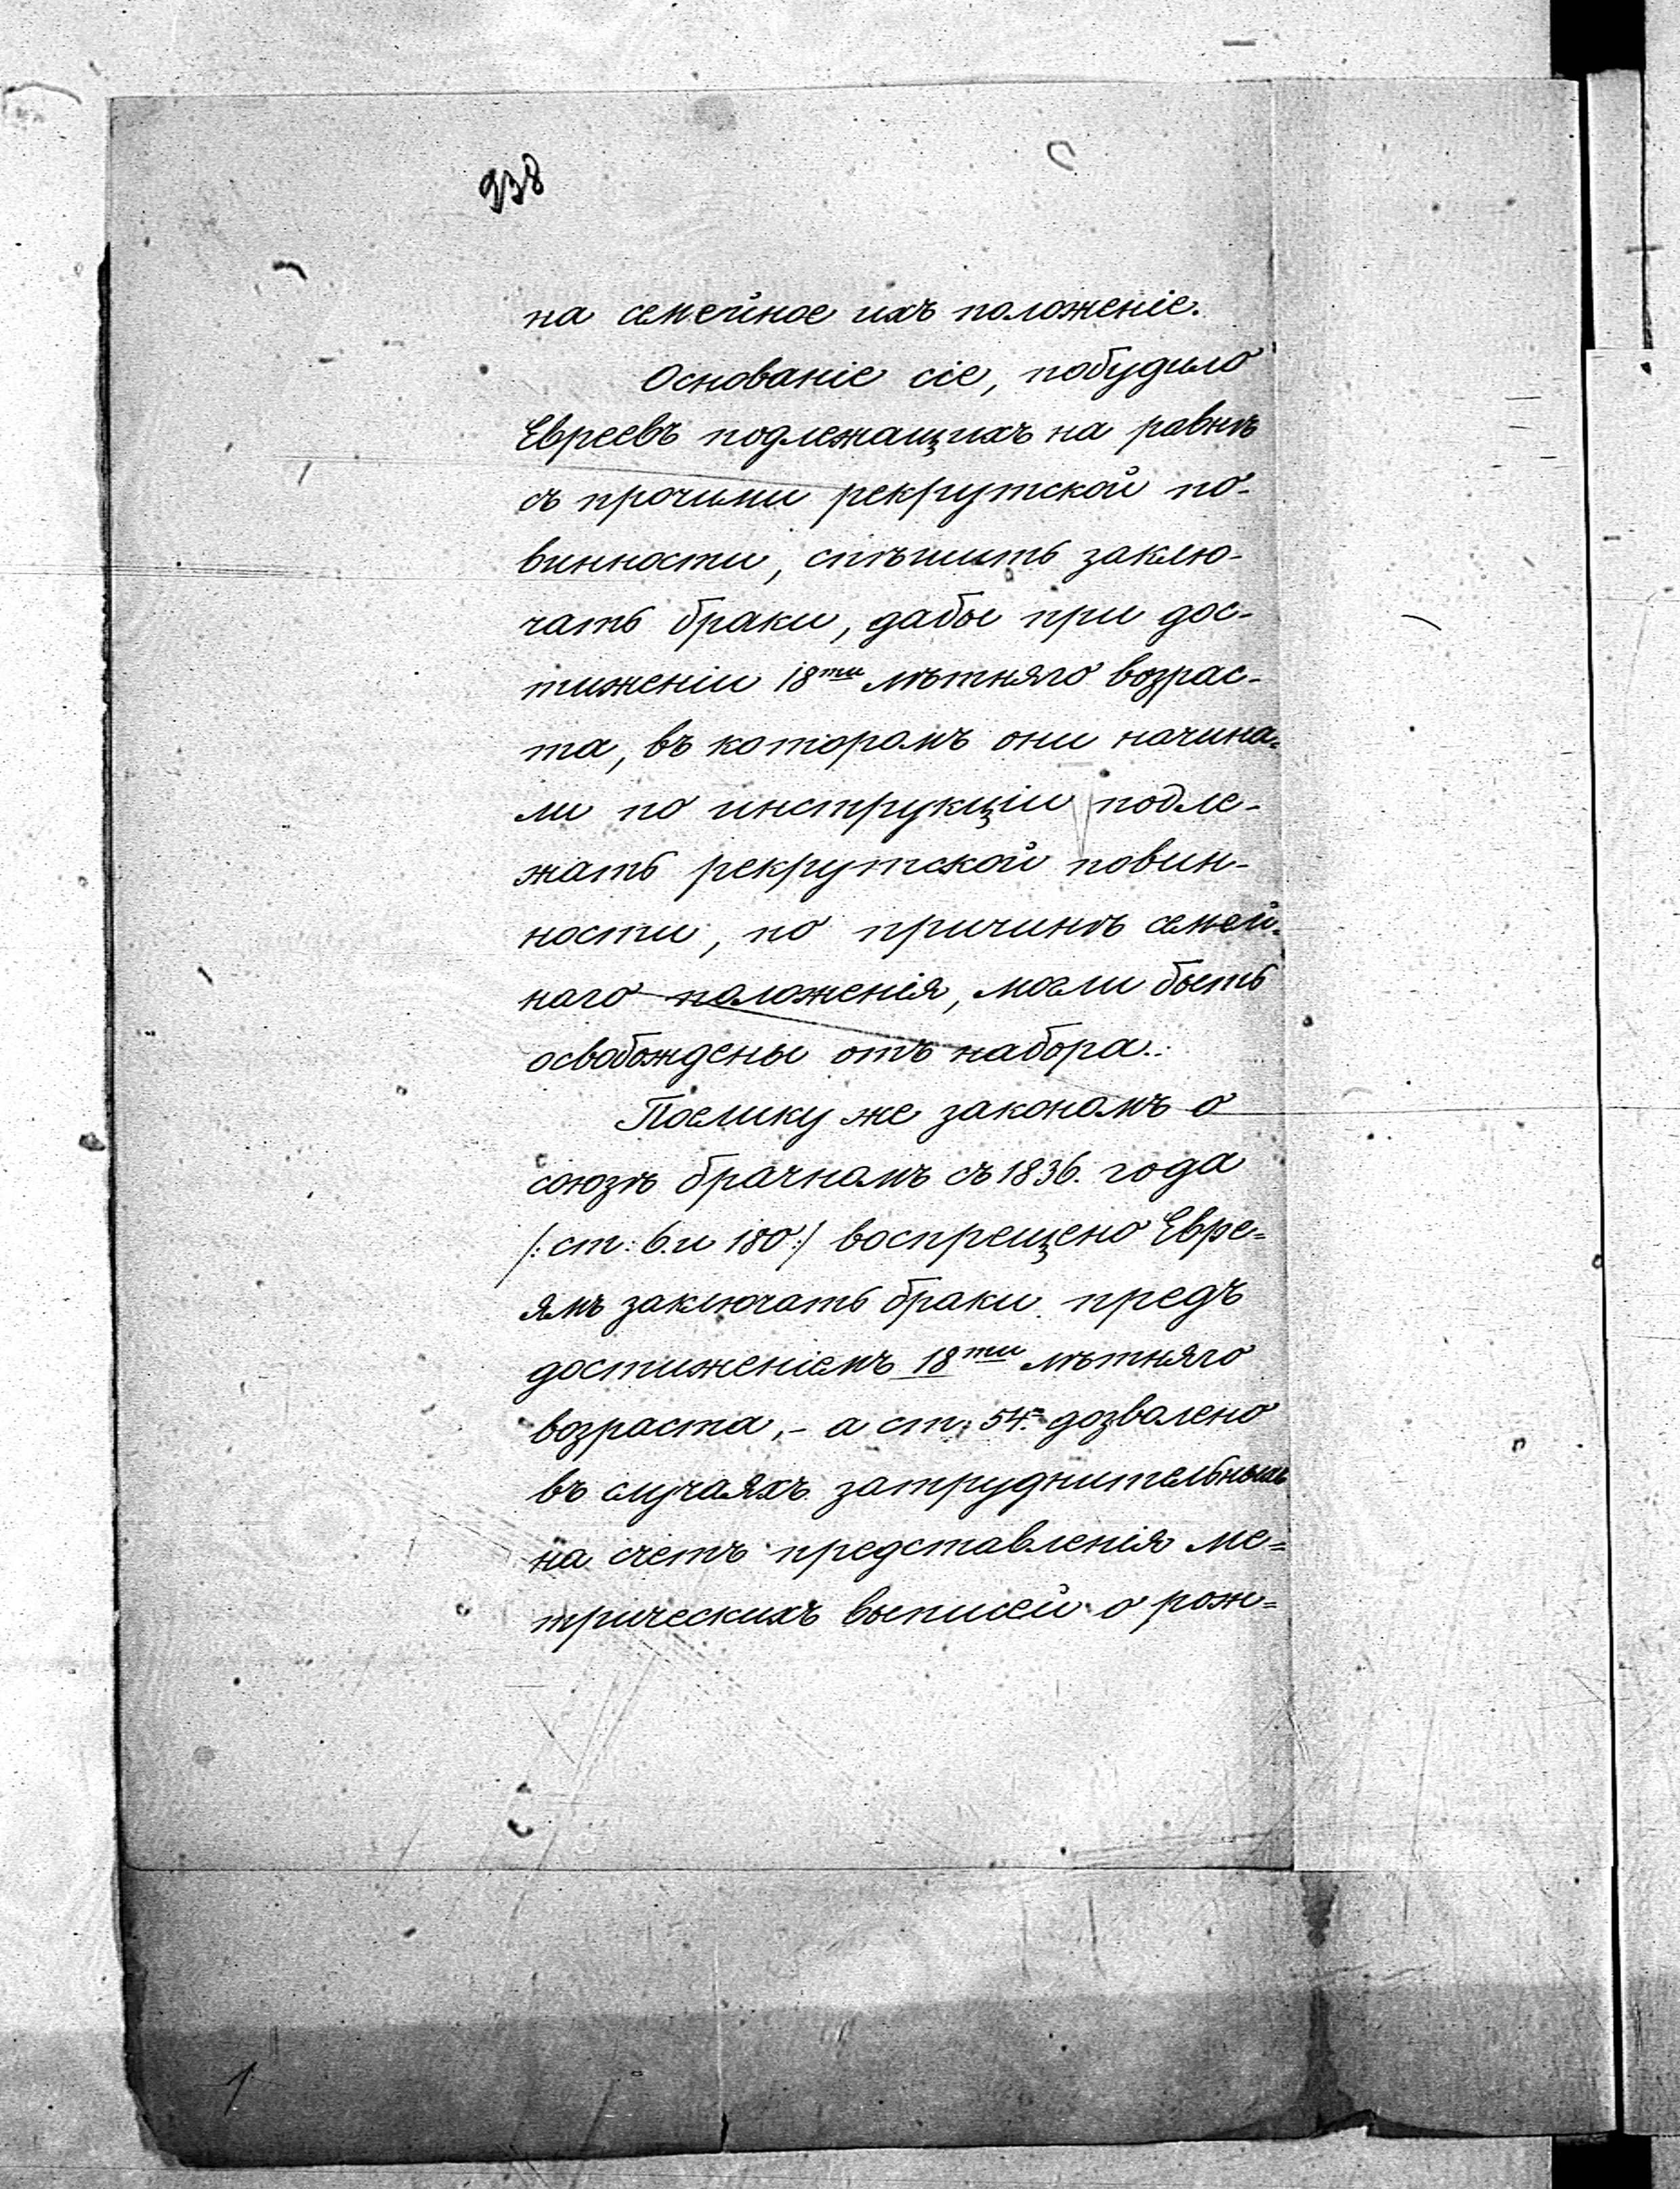 938
на семейное ихъ положеніе.
Основаніе сіе, побудило
Евреевъ подлежащихъ на равнѣ
съ прочими рекрутской по-
винности, спѣшить заклю-
чать браки, дабы при дос-
тиженіи 18ти лѣтняго возрас-
та, въ которомъ они начина-
ли по инструкціи подле-
жать рекрутской повин-
ности, по причинѣ семей-
наго положенія, могли быть
освобождены отъ набора.
Поелику же закономъ о
союзѣ брачномъ съ 1836. года
/: ст: 6. и 180 :/ воспрещено Евре=
ямъ заключать браки предъ
достиженіемъ 18ти лѣтняго
возраста, - а ст. 54. дозволено
въ случаяхъ затруднительныхъ
на счетъ представленія ме=
трическихъ выписей о рож=